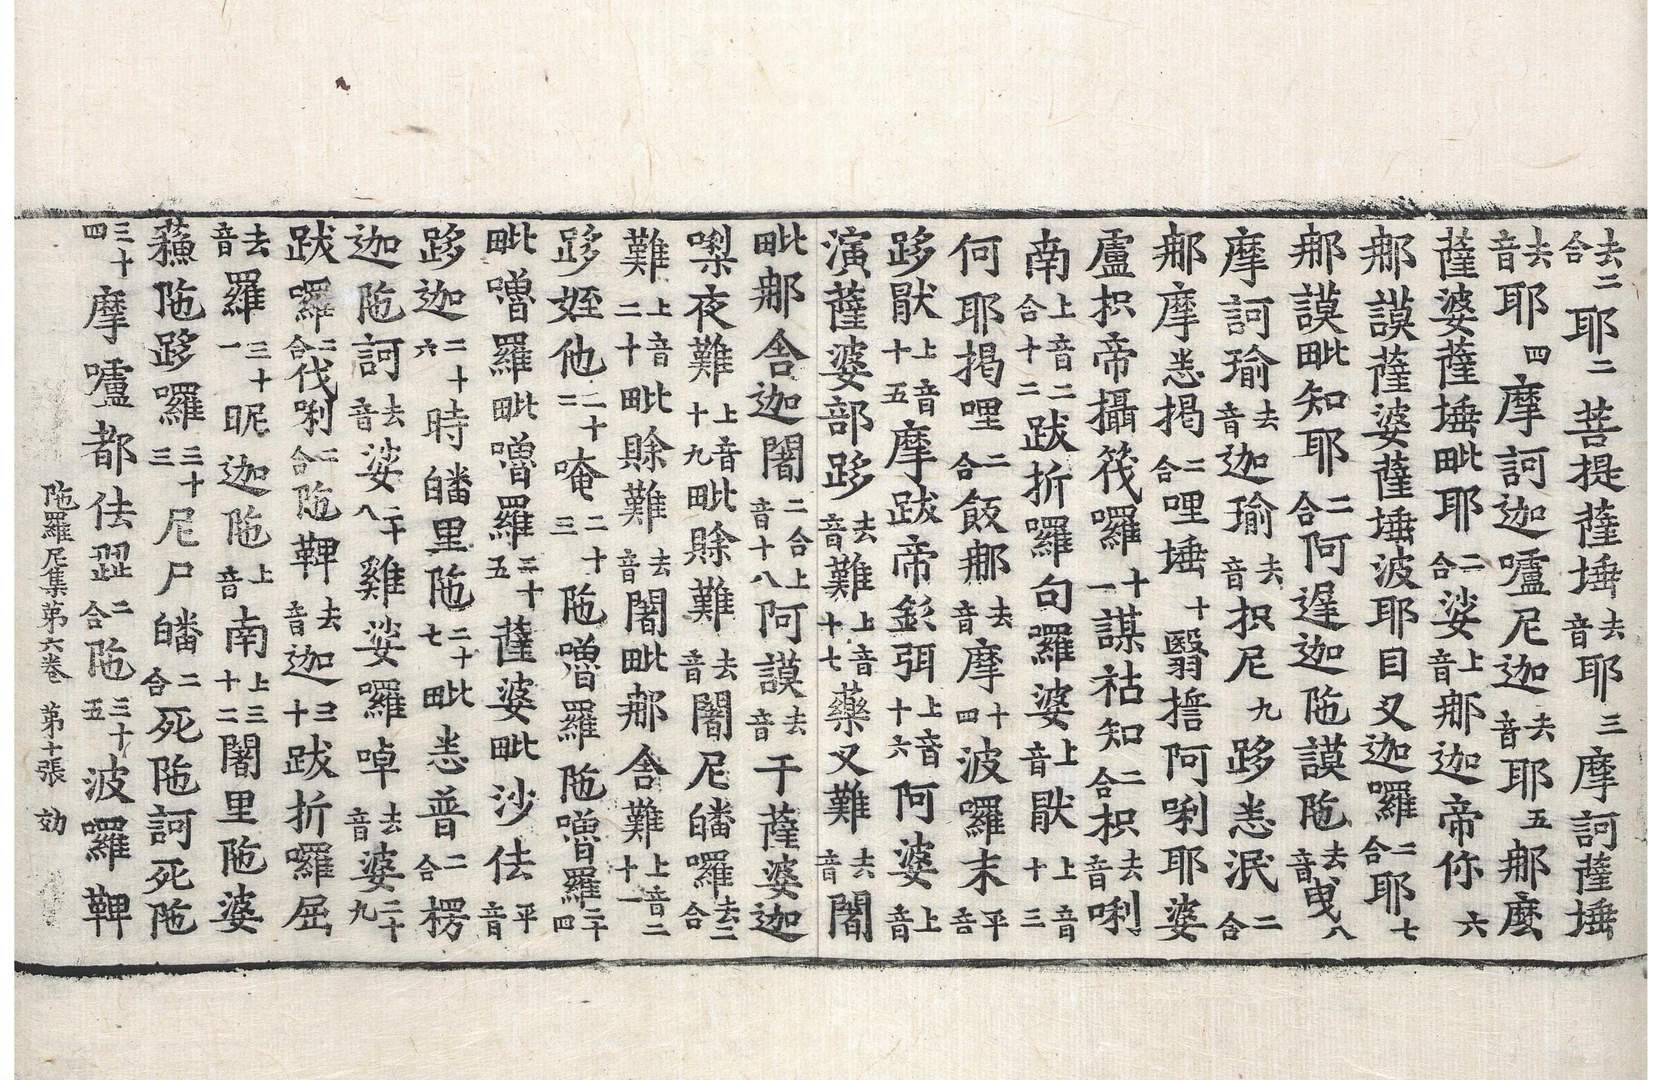 去二合耶二菩提薩埵去音耶三摩訶薩埵
去音耶四摩訶迦嚧尼迦去音耶五那麼
薩婆薩埵毗耶二合娑上音那迦帝你六
那謨薩婆薩埵波耶目叉迦囉二合耶七
那謨毗知耶二合阿遲迦陁謨陁去音曳八
摩訶瑜去音迦瑜去音抧尼九跢恙泯二合
那摩恙揭二合哩埵十翳撍阿唎耶婆
盧抧帝攝筏囉十一謀祜知二合抧去音唎
南上音二合十二跋折囉句囉婆上音猒上音十三
何耶揭哩二合飯那去音摩十四波囉末平音
跢猒上音十五摩跋帝釤弭上音十六阿婆上音
演薩婆部跢去音難上音十七藥叉難去音闇
毗那舍迦闇二合上音十八阿謨去音干薩婆迦
㗚夜難上音十九毗賖難去音闇尼皤囉去二合
難上音二十毗賖難去音闇毗那舍難上音二十一
跢姪他二十二唵二十三陁嚕羅陁嚕羅二十四
毗嚕羅毗嚕羅二十五薩婆毗沙佉平音
跢迦二十六時皤里陁二十七毗恙普二合楞
迦陁訶去音娑二十八雞娑囉啅去音婆二十九
跋囉二合伐唎二合陁鞞去音迦三十跋折囉屈
去音羅三十一昵迦陁上音南上三十二闇里陁婆
蘓陁跢囉三十三尼尸皤二合死陁訶死陁
三十四摩嚧都佉澀二合陁三十五波囉鞞
陁羅尼集第六卷 第十張 効